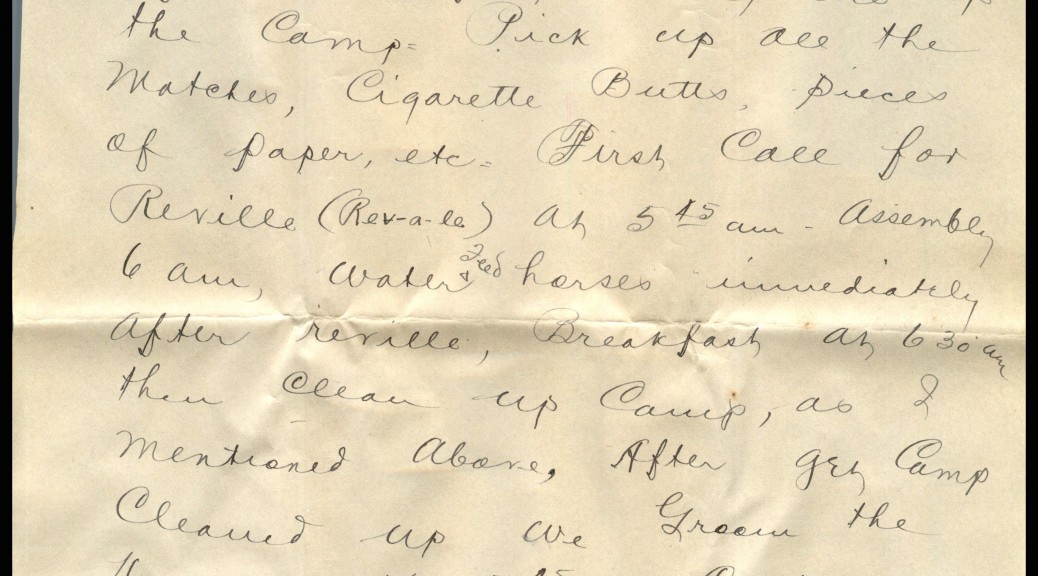 the Camp= Pick up all the
Matches, Cigarette Butts, pieces
of paper, etc= First Call for
Reville (Rev-a-le) at 5 45 am - Assembly
6 am, Water & Feed horses immediately
After reville, Breakfast at 6 30 am
then Clean up Camp, as I
mentioned Above, After get Camp
Cleaned up we Groom the